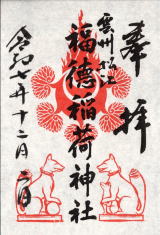 奉拝
雲州松江
福徳稲荷神社
令和七年十二月二日